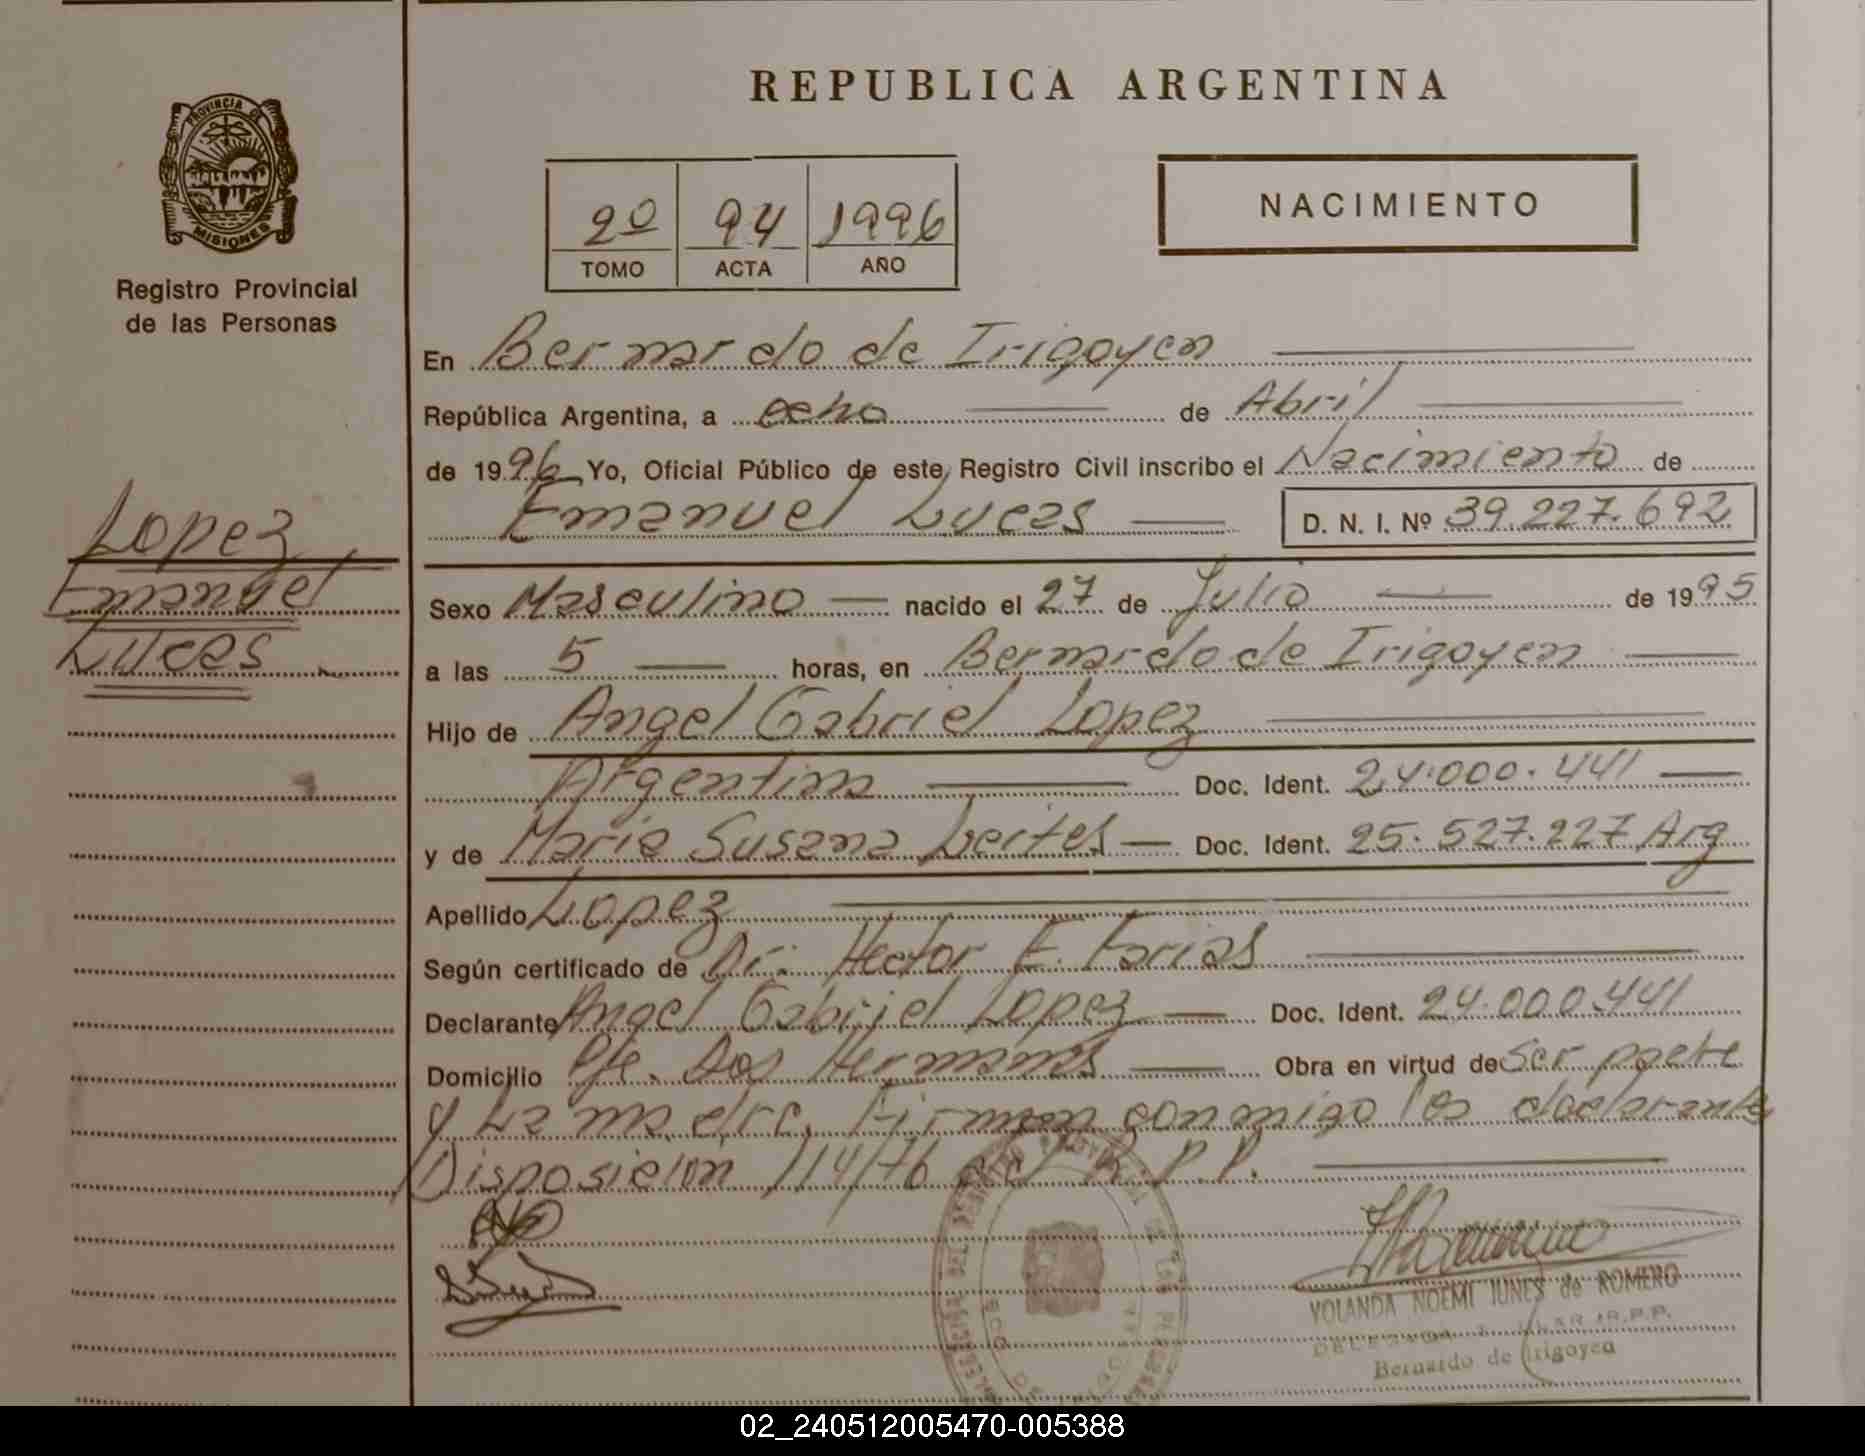 PROVINCIA DE
MISIONES
Registro Provincial
de las Personas
Lopez
Emanuel
Lucas
REPUBLICA ARGENTINA
2º 94 1996
TOMO ACTA AÑO
NACIMIENTO
En Bernardo de Irigoyen
República Argentina, a ocho de Abril
de 1996 Yo, Oficial Público de este Registro Civil inscribo el Nacimiento de
Emanuel Lucas D. N. I. Nº 39.227.692
Sexo Masculino nacido el 27 de Julio de 1995
a las 5 horas, en Bernardo de Irigoyen
Hijo de Angel Gabriel Lopez
Argentino Doc. Ident. 24.000.441
y de Maria Susana Leites Doc. Ident. 25.527.227 Arg
Apellido Lopez
Según certificado de Dr. Hector E. Farias
Declarante Angel Gabriel Lopez Doc. Ident. 24.000.441
Domicilio Pje. Dos Hermanas Obra en virtud de Ser padre
y La madre. Firman conmigo los declarante
Disposicion 114/76 del R.P.P.
YOLANDA NOEMI JUNES de ROMERO
Bernardo de Irigoyen
02_240512005470-005388